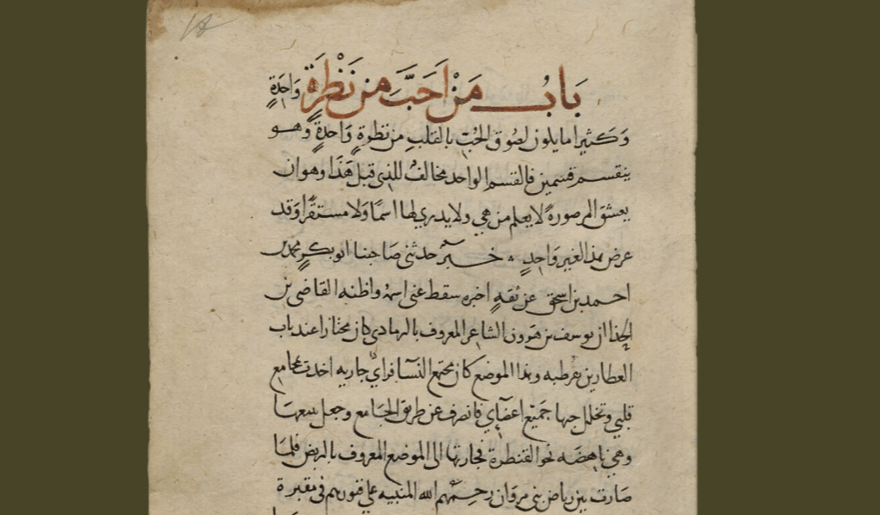 باب من احب من نظرة واحدة
وكثيرا ما يكون لصوق الحب بالقلب من نظرة واحدة وهو
ينقسم قسمين فالقسم الواحد مخالف للذي قبل هذا وهو ان
يعشق المر صورة لا يعلم من هي ولا يدري لها اسما ولا مستقرا وقد
عرض هذا لغير واحد خبر حدثني صاحبنا ابو بكر محمد بن
احمد بن اسحق عن ثقه اخبره سقط عني اسمه واظنه القاضي بن
الحذا ان يوسف بن هرون الشاعر المعروف بالرمادي كان مجتازا عند باب
العطارين بقرطبه وهذا الموضع كان مجتمع النسا فراي جاريه اخذت بمجامع
قلبي وتخلل حبها جميع اعضاي فانصرف عن طريق الجامع وجعل يتبعها
وهي ناهضه نحو القنطرة فجازتها الى الموضع المعروف بالربض فلما
صارت بين رياض بني مروان رحمهم الله المبنيه على قبورهم في مقبرة